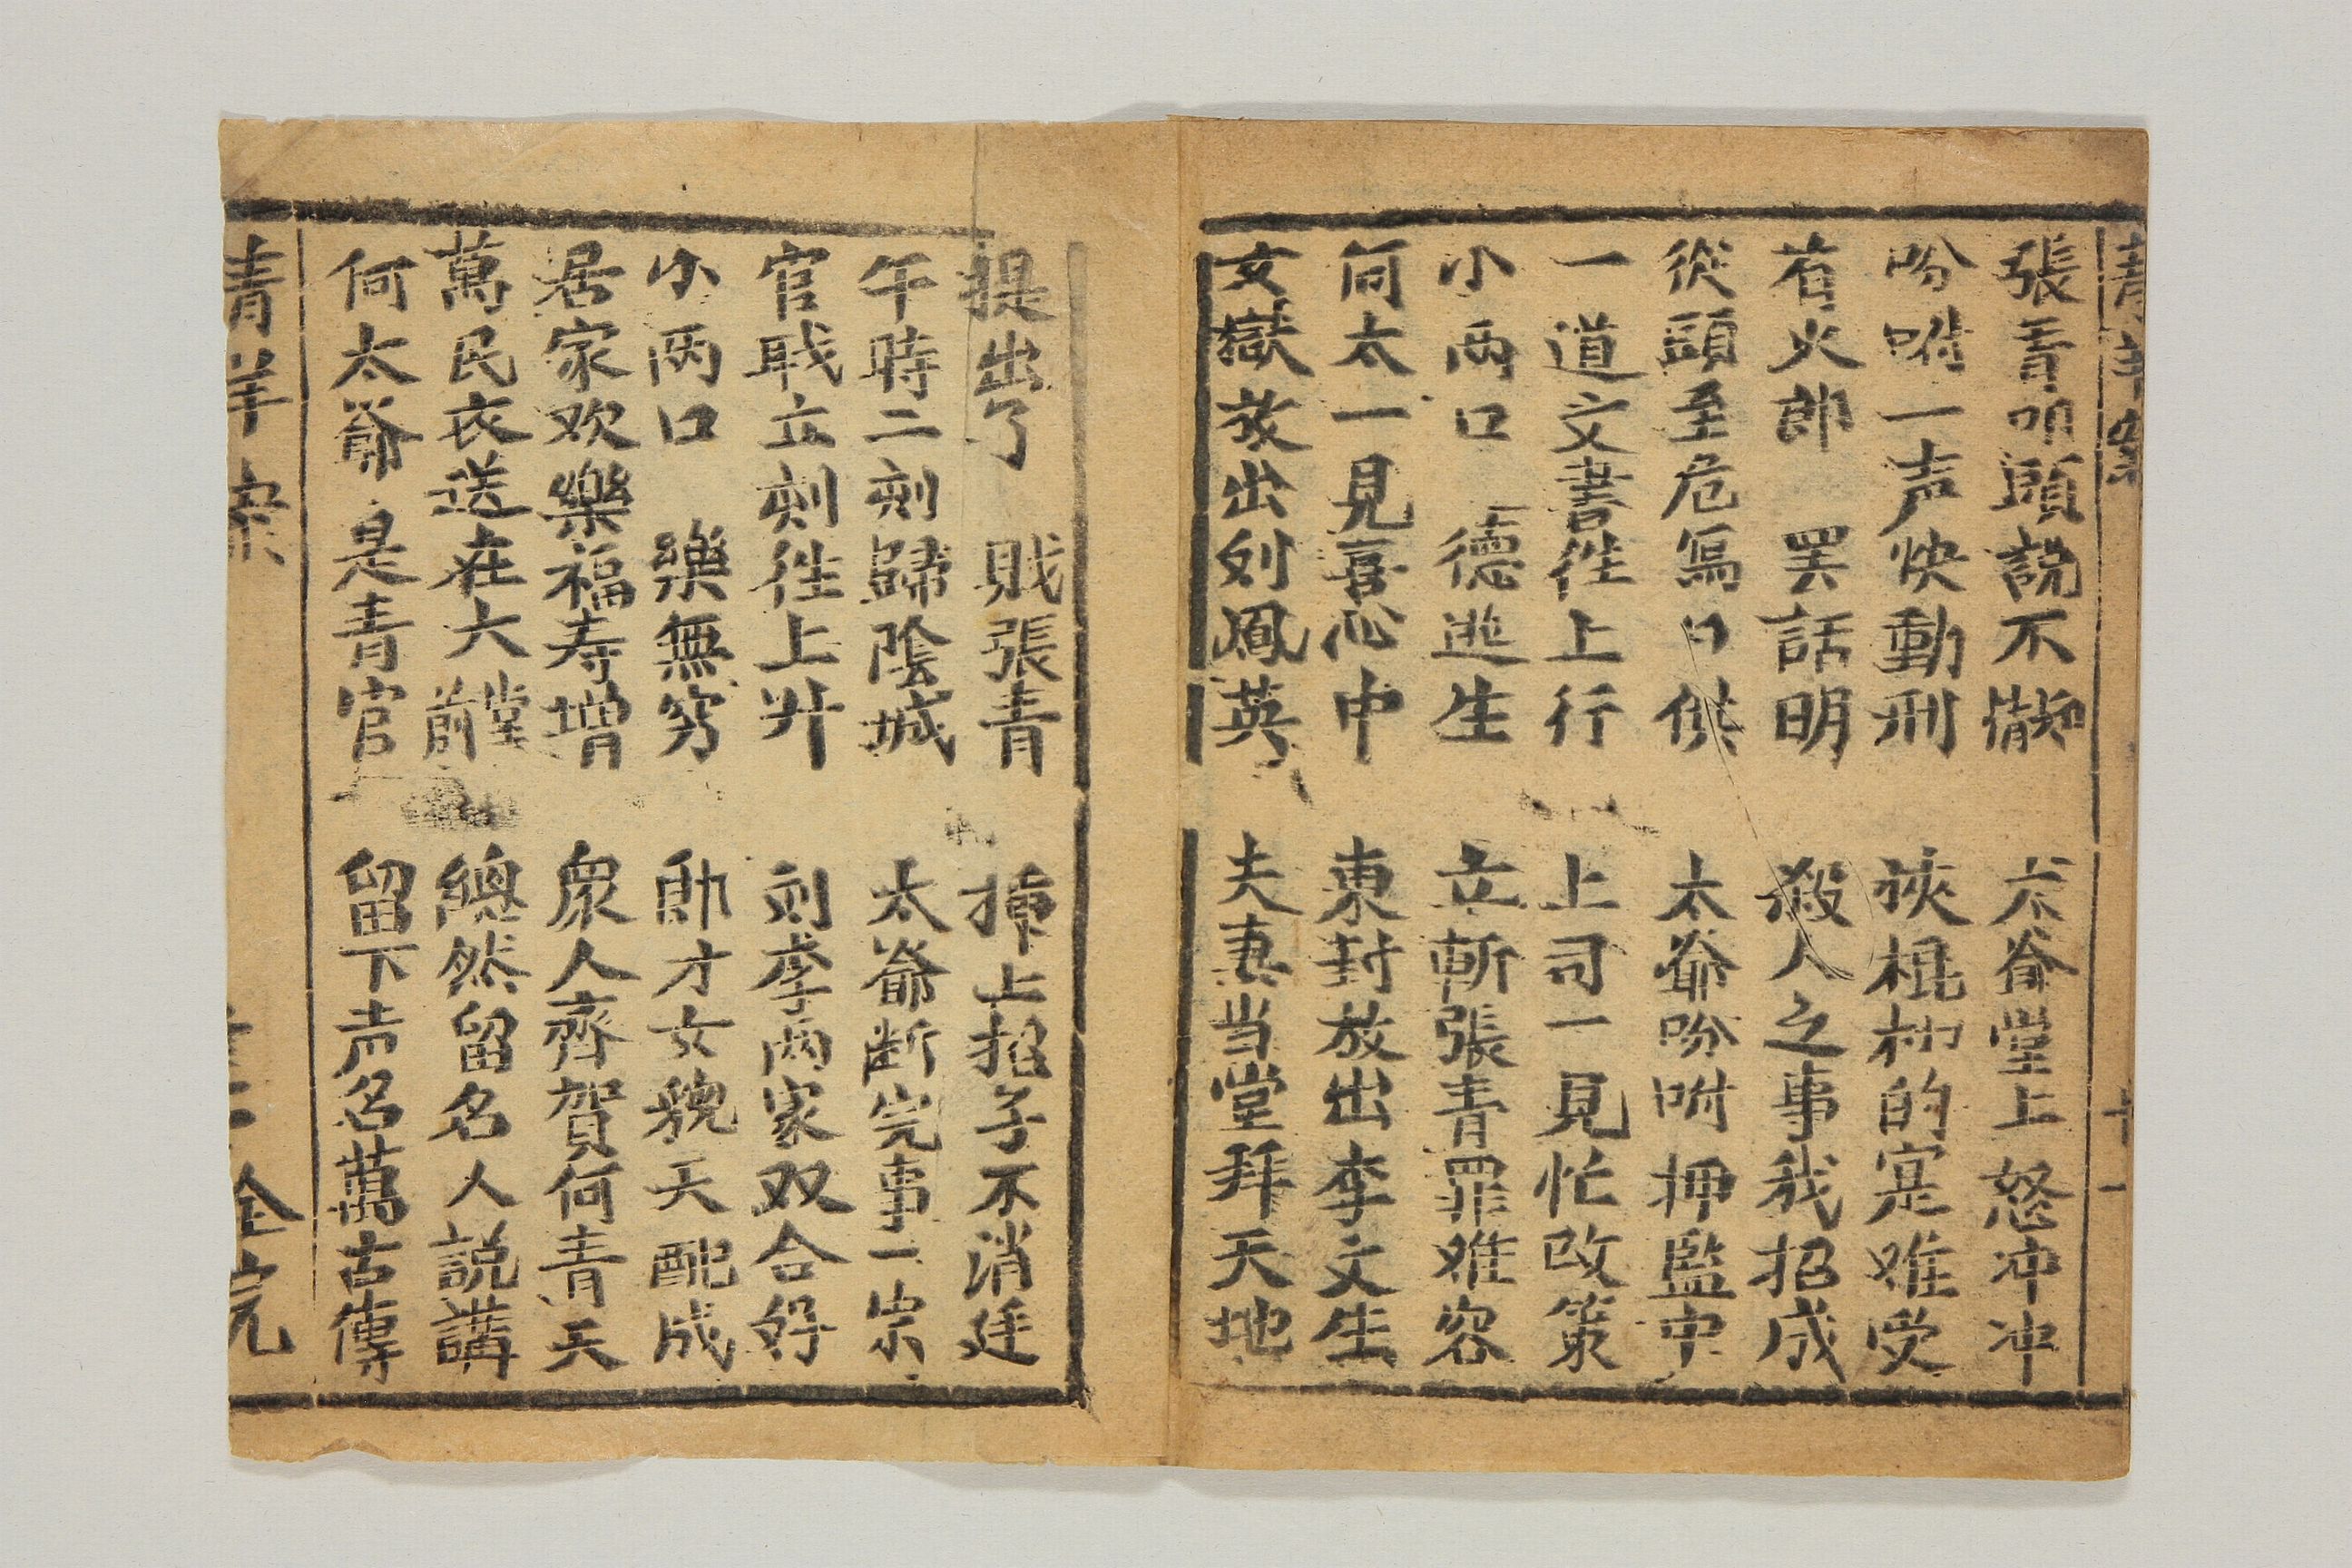 張青叩頭說不㰸 太爺堂上怒冲冲
吩咐一声快動刑 挾棍杻的寔难受
有火郎罢話明 殺人之事我招成
從頭至危寫口供 太爺吩咐押監中
一道文書徃上行 上司一見忙改策
小両口德逃生 立斬張青罪难容
何太一見喜心中 東封放出李文生
女嶽放出刘鳳英 夫妻当堂拜天地
提出了賊張青 揷上招子不消廷
午時二刻歸陰城 太爺断完事一宗
官戝立刻徃上升 刘李両家双合好
小両口樂無穷 郎才女貌天配成
居家欢樂福寿增 衆人齊賀何青天
萬民衣送在大堂前 總然留名人說講
何太爺是青官 留下清名萬古傳
青羊案 全完